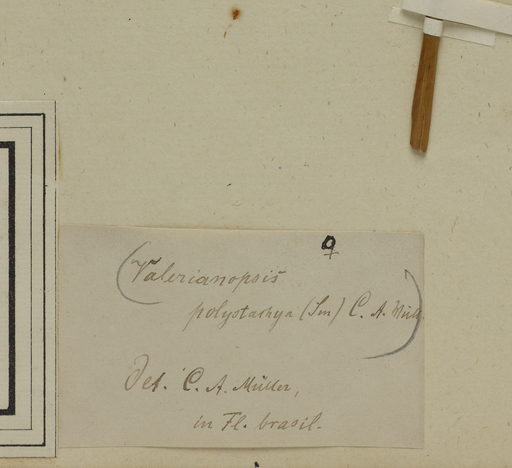 ♀
(Valerianopsis
polystachya (Sm) C. A. Müll)
Det. C. A. Müller,
in Fl. brasil.